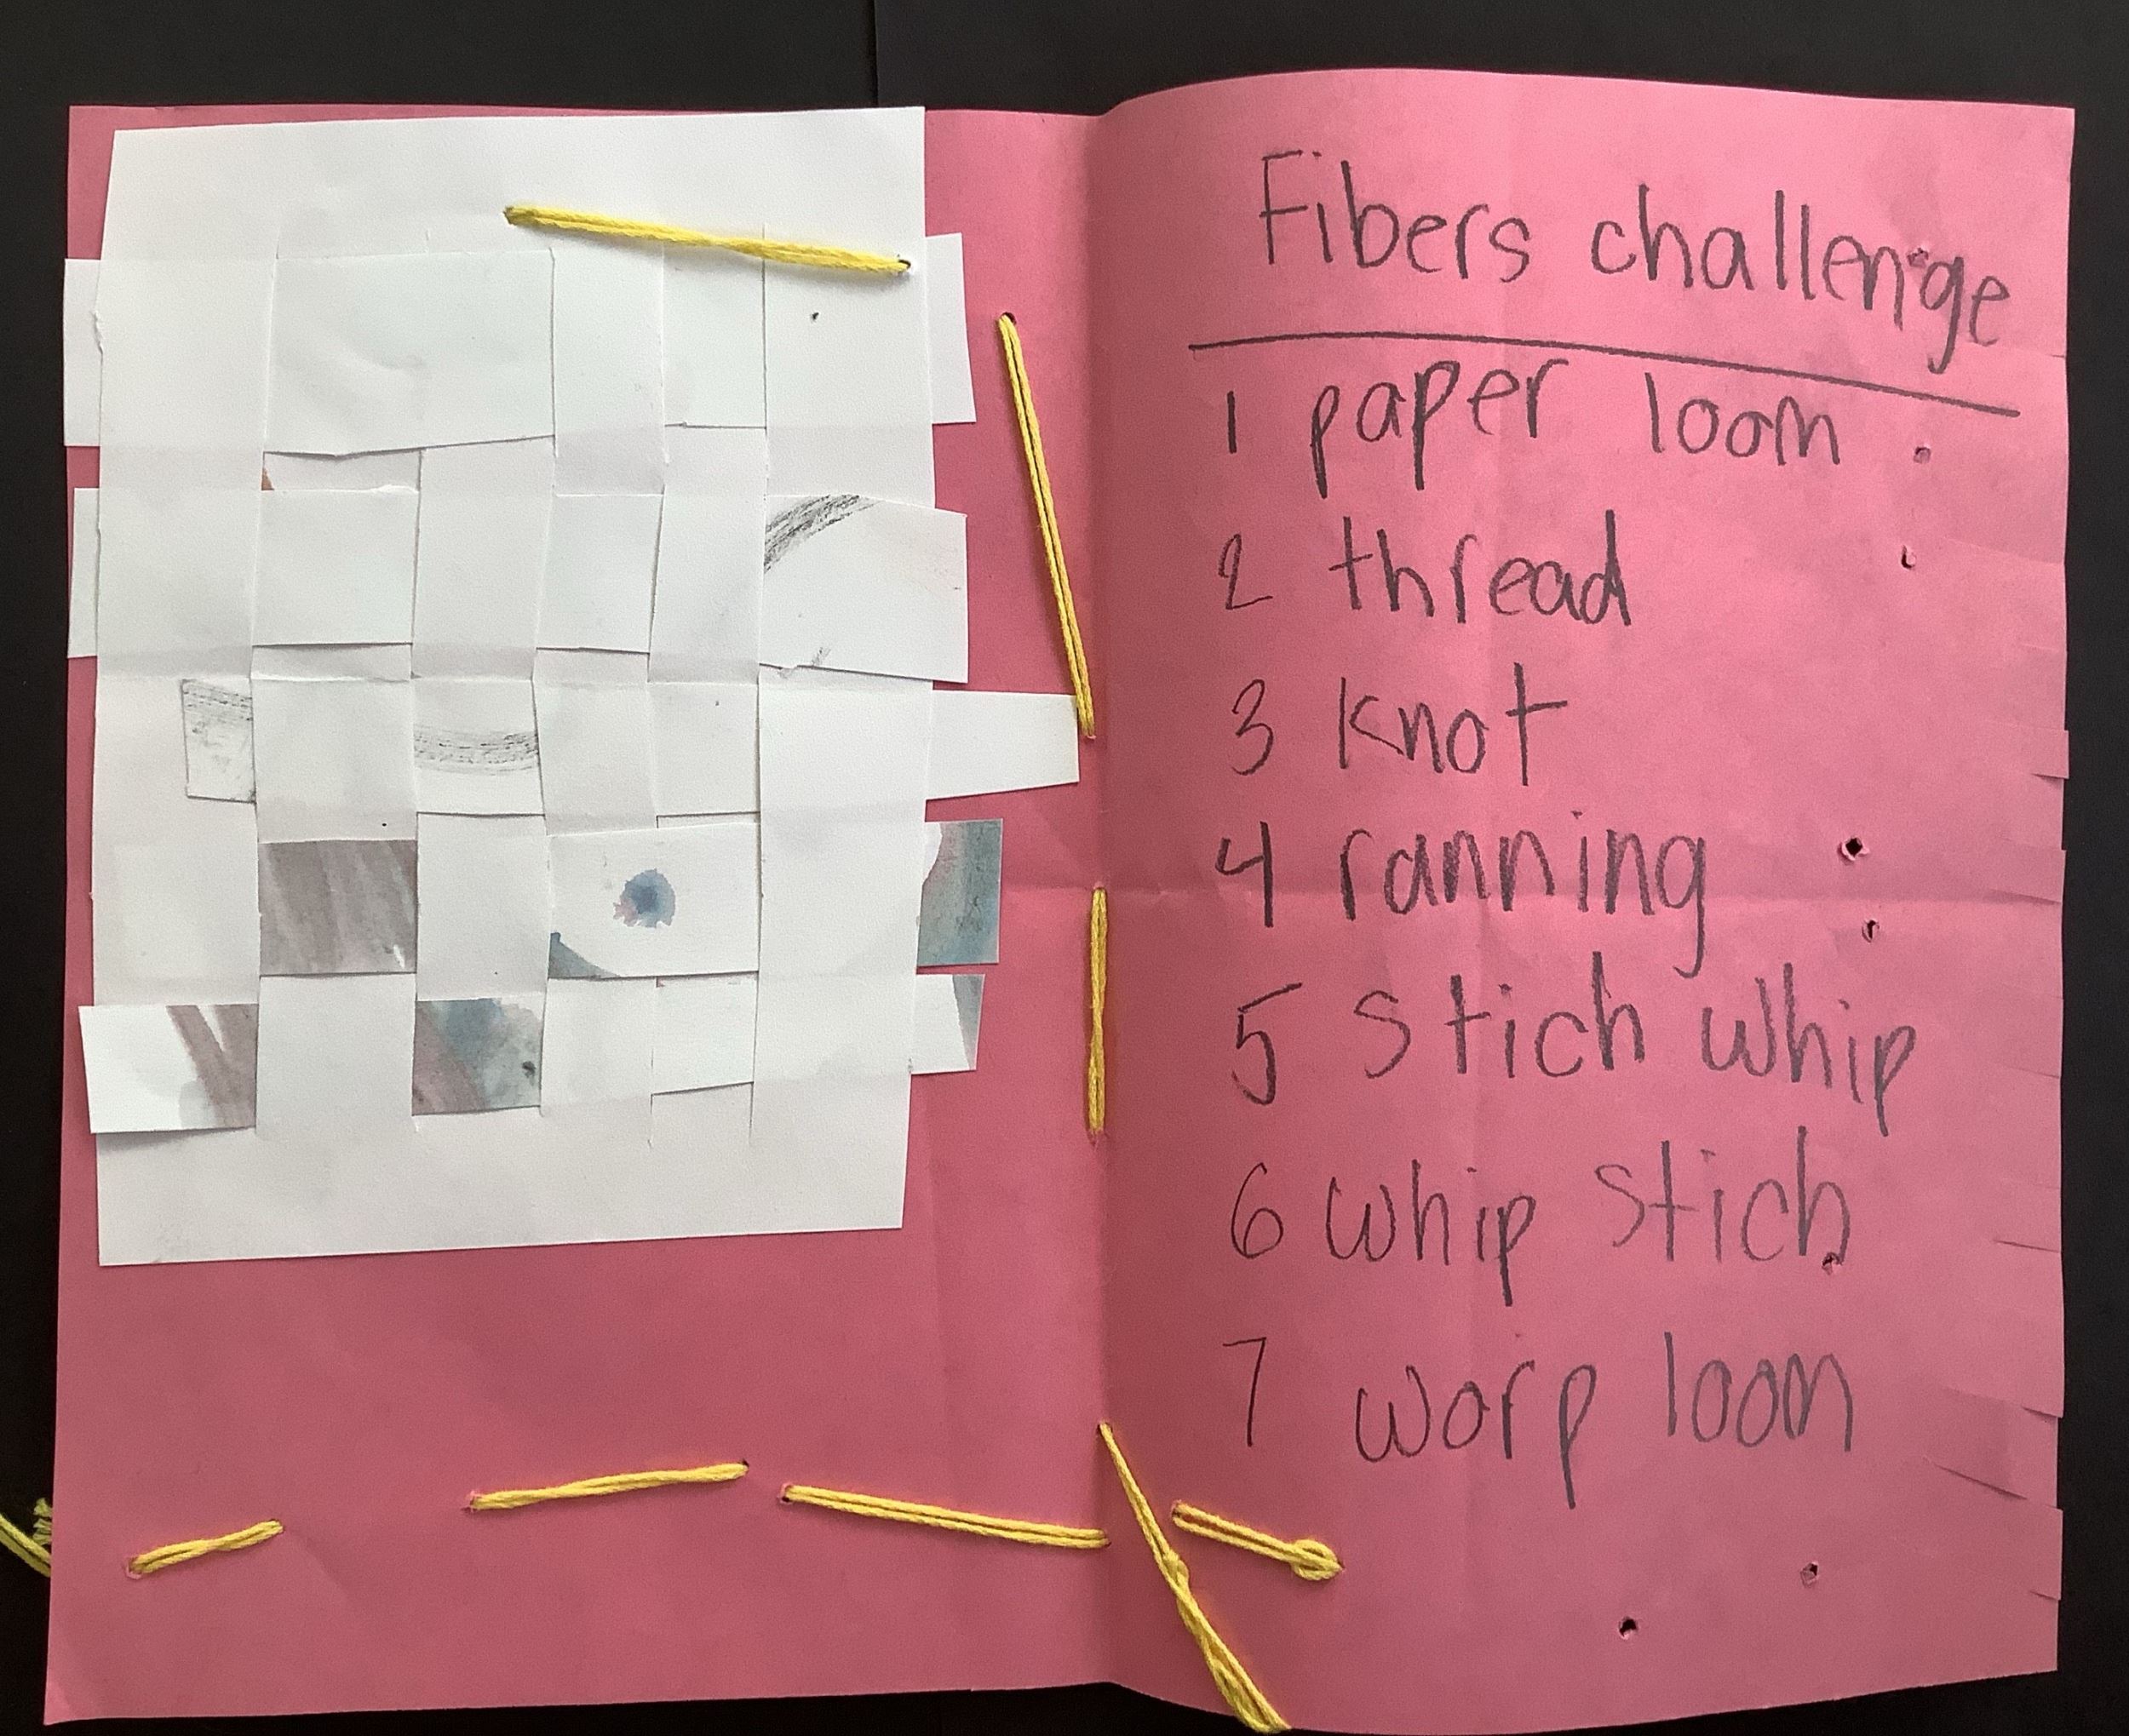 Fibers challenge
1 paper loom
2 thread
3 knot
4 ranning
5 stich whip
6 whip stich
7 worp loom